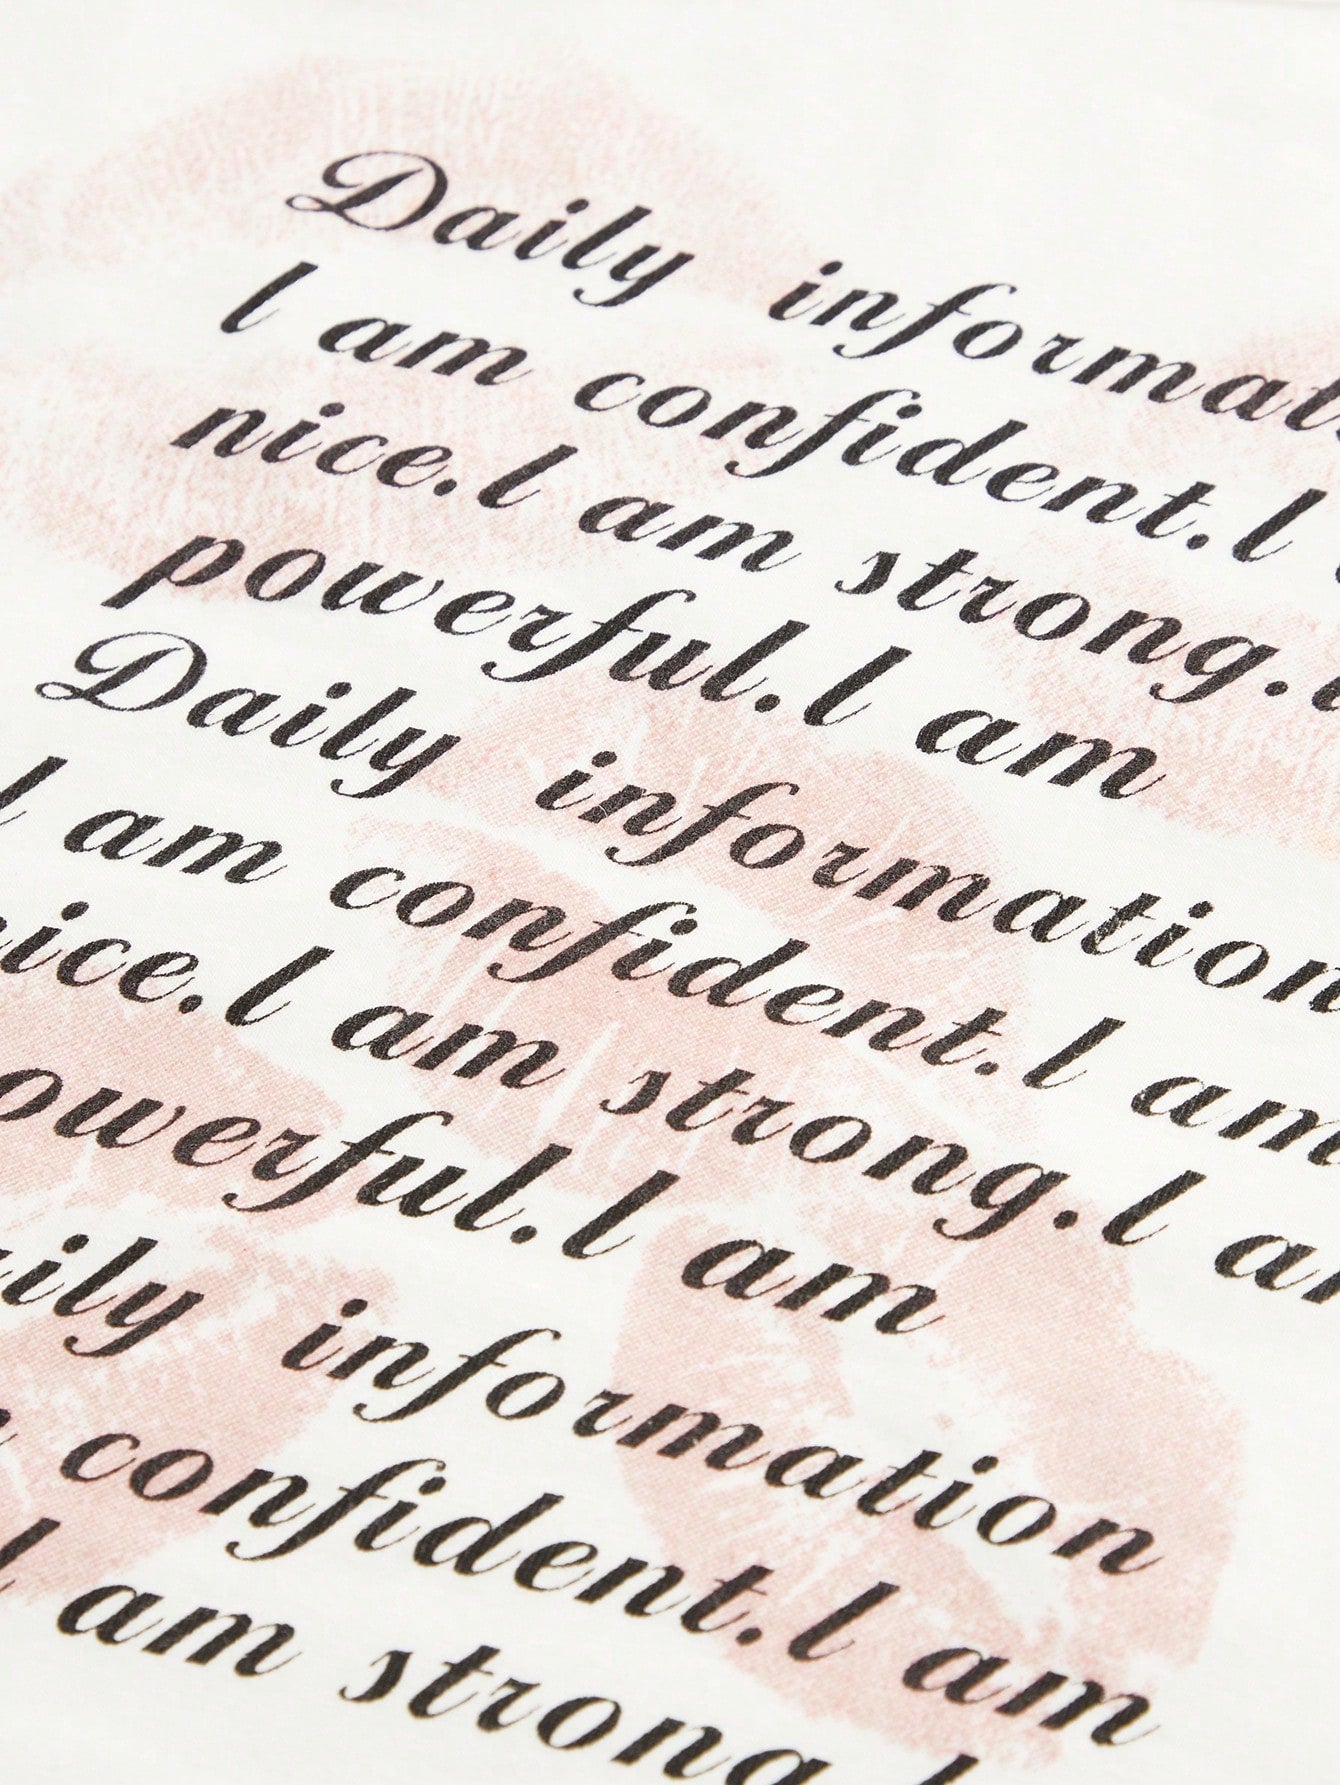 Daily informat
l am confident.l
nice.l am strong.l
powerful.l am
Daily information
l am confident.l am
ice.l am strong.l a
owerful.l am
ily information
confident.l am
l am strong.l